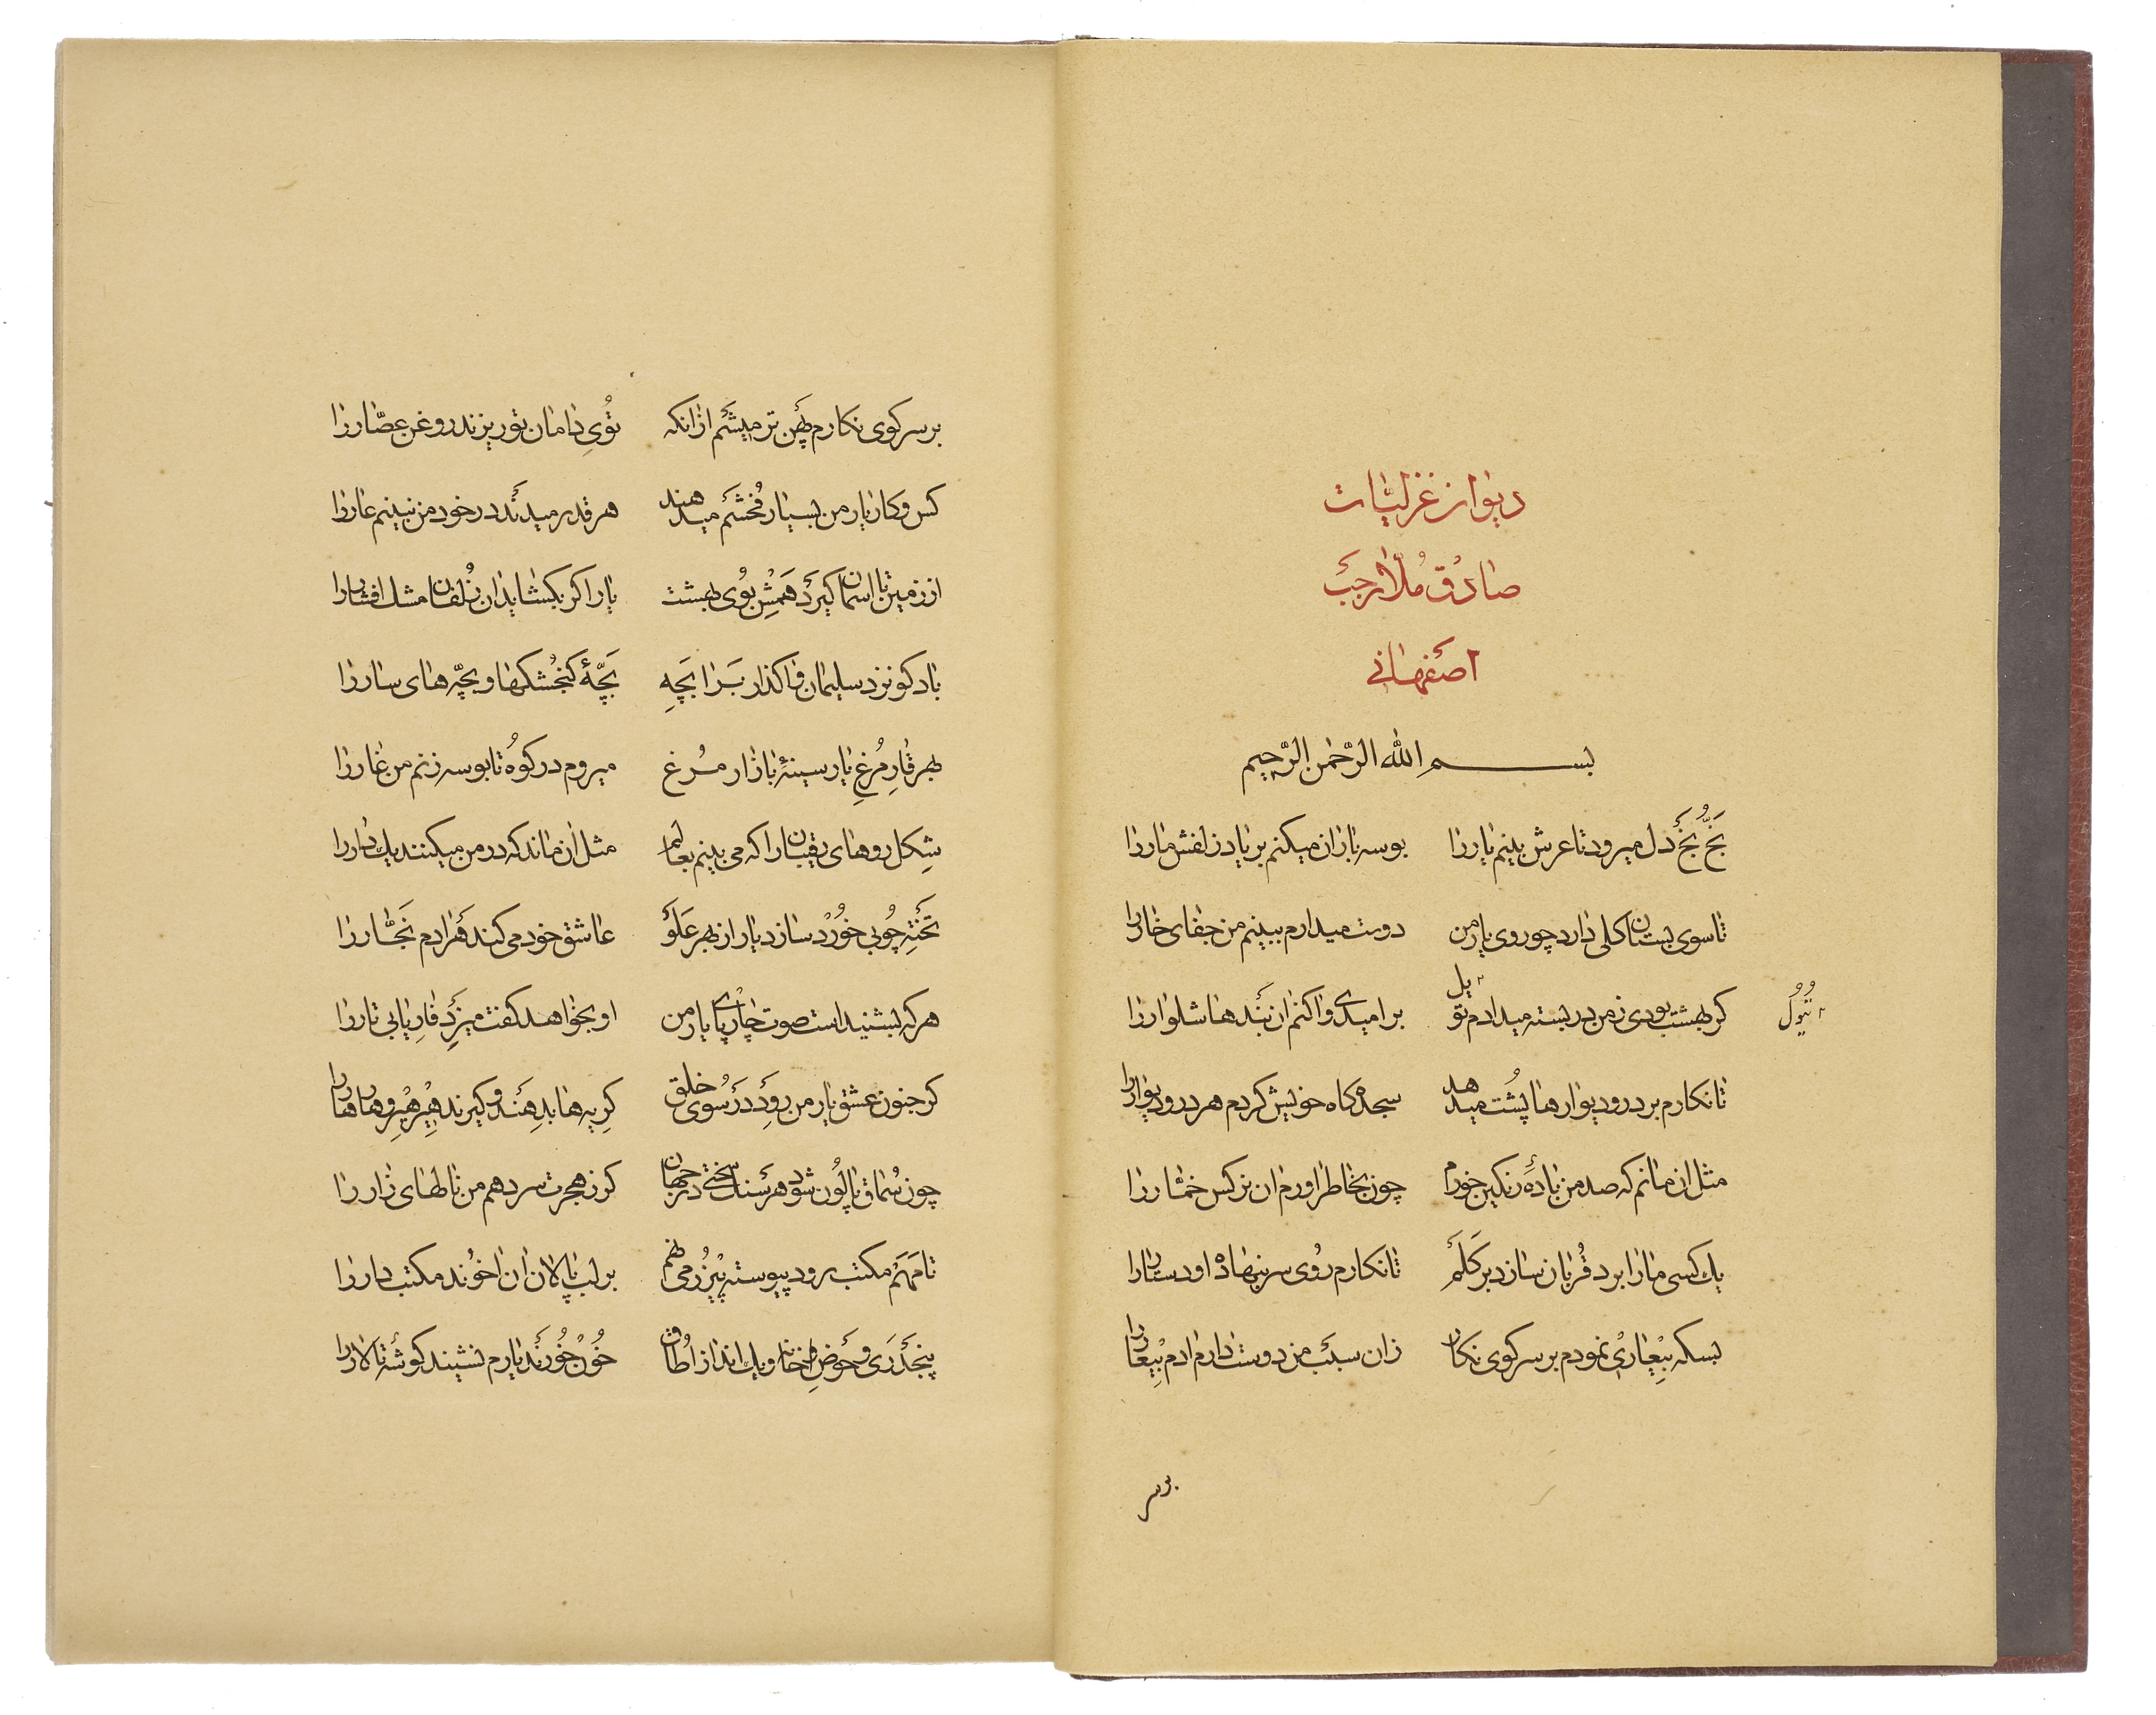 دیوان غزلیّات
صادق مُلّا رجب
اصفهانی
بسم الله الرّحمن الرّحیم
بَخّ بُخّ دل میرود تا عرش بینم یار را بوسه باران میکنم بر یاد زلفش مار را
تا سوی بستان کلی دارد چو روی یار من دوست میدارم ببینم من جفای خار را
کر بهشت بودی ز من در بسته میدادم تیول بر امیدی واکنم ان بند ها شلوار را
تیُول
تا نکارم بر در و دیوارها پُشت میدهد سجده کاه خویش کردم هر در و دیوار را
مثل ان مانم که صد من بادهٔ رنکین خورم چون بخاطر اورم ان نرکس خمّار را
یك کسی مارا برد قُربان سازد بر کَلَم تا نکارم رُوی سر بنهاده او دستار را
بسکه بیعاری نمودم بر سر کوی نکار زان سبب من دوست دارم ادم بیعار را
بر سر
بر سر کوی نکارم پهن تر میشم ازانکه تُویِ دامان تو ریزند روغن عصّار را
کس و کار یار من بسیار فُحشم میدهند هر قدر میدند در خود من نبینم عار را
از زمین تا اسمان کیرد همش بُوی بهشت یار اکر بکشاید ان زُلفان مشك افشار را
باد کو نزد سلیمان واکذار بَرا بَچهِ بَچّهٔ کنجُشکها و بچّه های سار را
بهر قارِ مُرغِ یار سینهٔ بازار مرغ میروم در کُوه تا بوسه زنم من غار را
شِکل روهای رقیبان را که می بینم بعالم مثل ان ماند که در من میکنند یك دار را
تختهِ چُوبی خُورْد سازد یار از بهر عَلَوْ عاشق خود می کند هَر ادم نجّار را
هر که بشنید است صوت چارپای یار من او بخواهد کفت میزد فاریابی تار را
کر جنون عشق یار من رود در سُوی خلق کِریه ها بدِهَند و کیرند هِرْهِر و هار هار را
چون سُماق پالُون شود هر سنك سختی در جهان کر ز هجرت سر دهم من نالهای زار را
تا مَهَم مکتب رود پیوسته پیزُر می نهم بر لب پالان ان اخُوند مکتب دار را
پنجدَری و حَوض خانه و یك انداز اطُاق خُوْرخُورَند یارم نشیند کوشهٔ تالار را